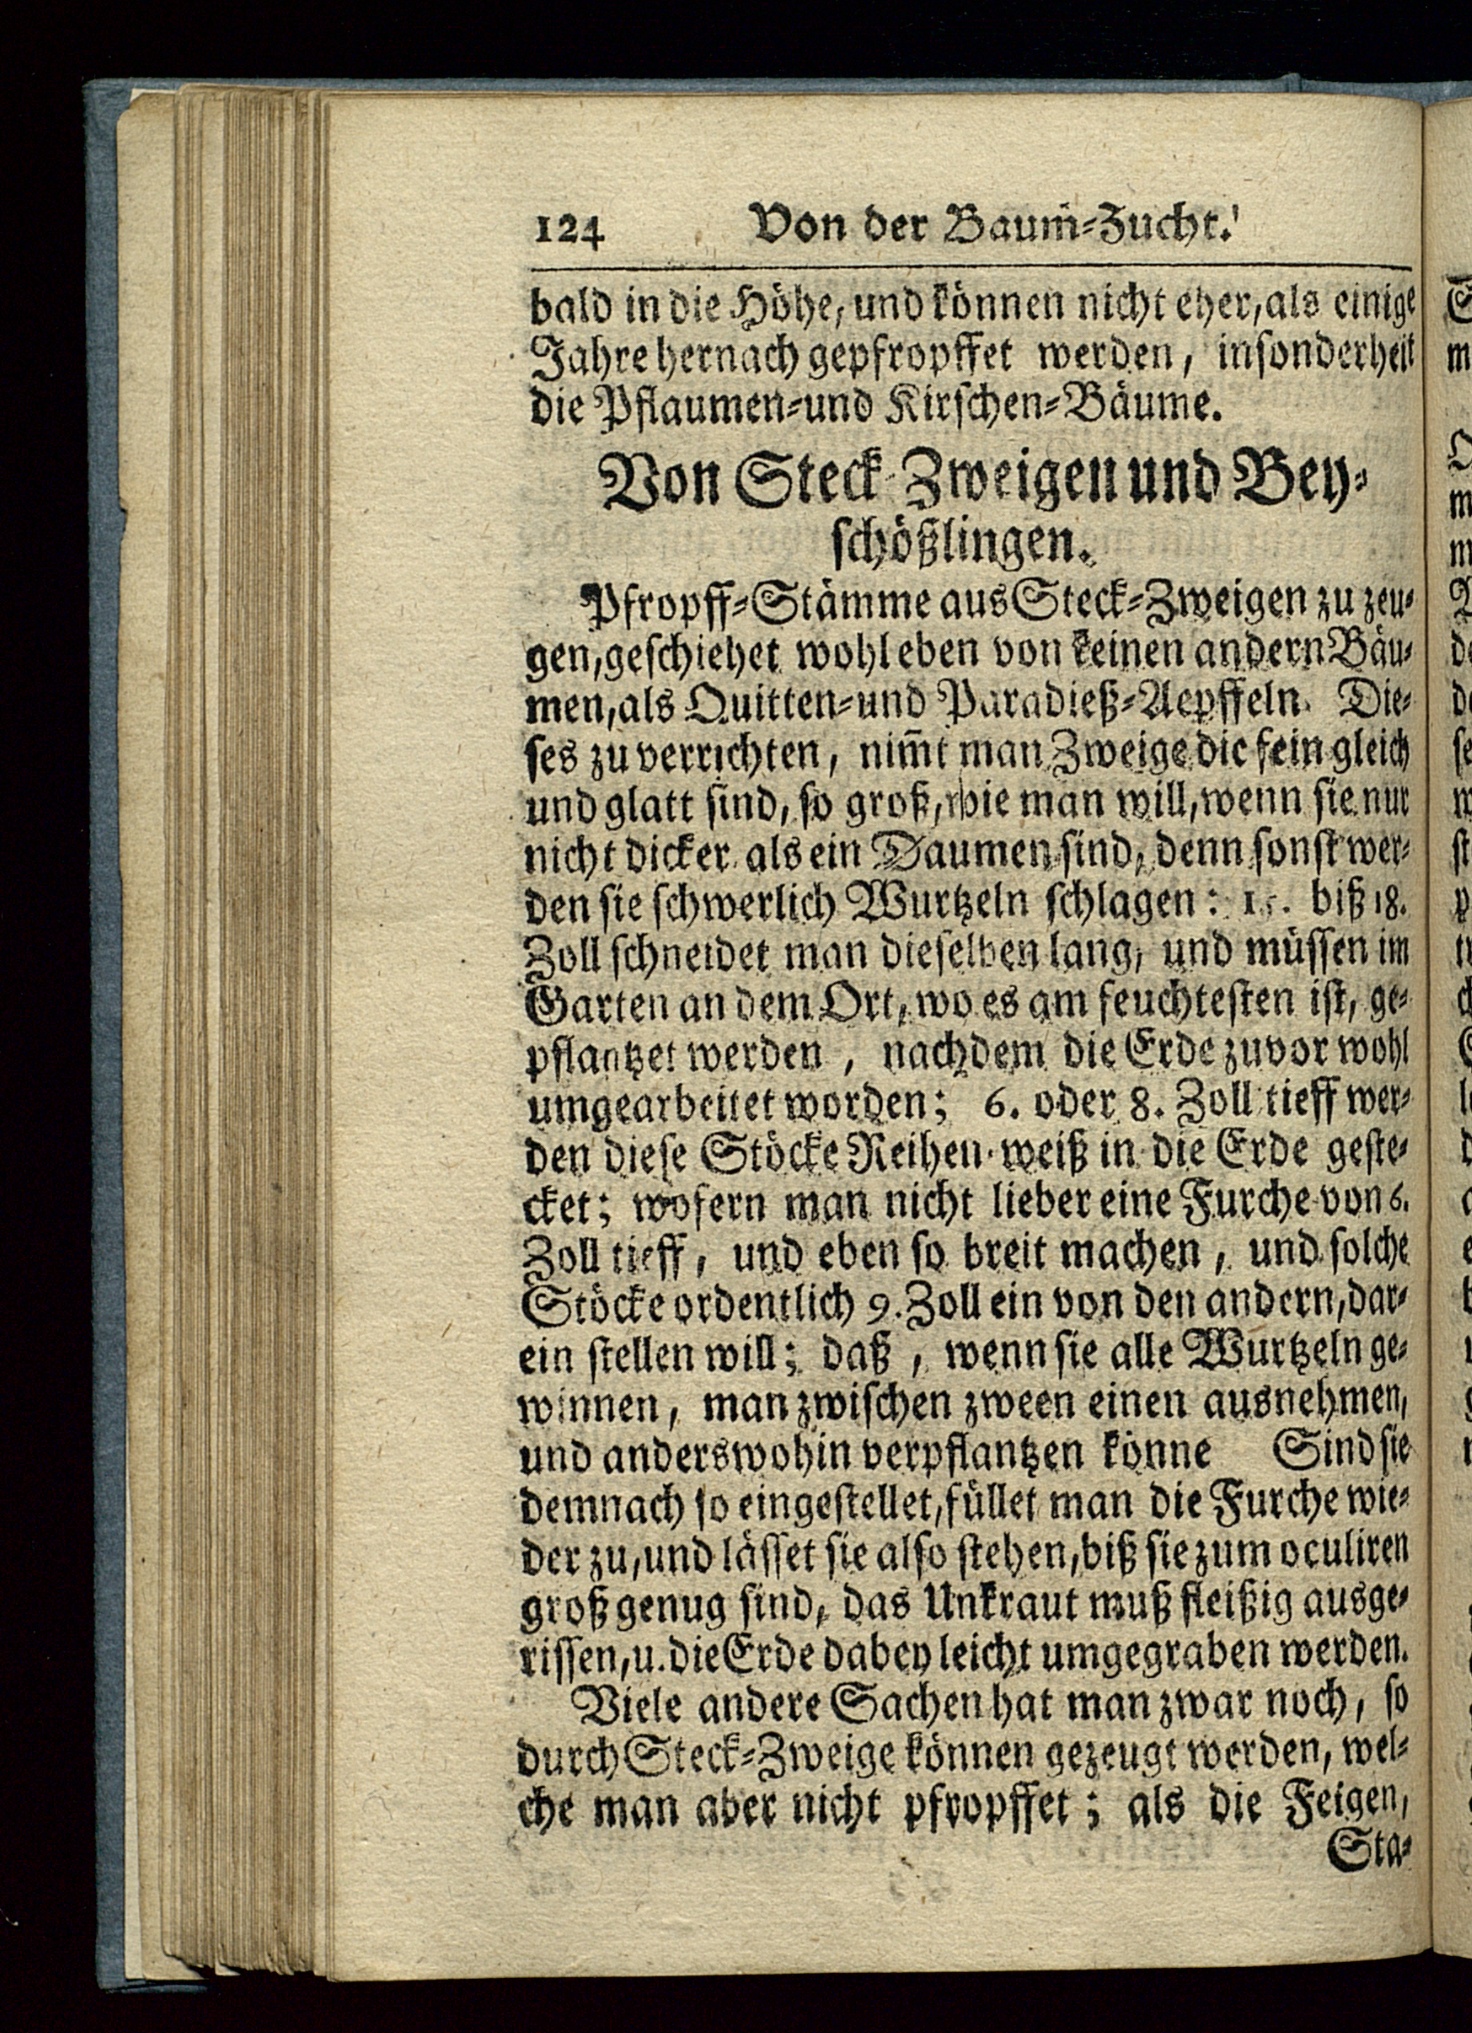 124 Von der Baum-Zucht.
bald in die Höhe, und können nicht eher, als einige
Jahre hernach gepfropffet werden, insonderheit
die Pflaumen-und Kirschen-Bäume.
Von Steck-Zweigen und Bey-
schößlingen.
Pfropff-Stämme aus Steck-Zweigen zu zeu-
gen, geschiehet wohl eben von keinen andern Bäu-
men, als Quitten-und Paradieß-Aepffeln. Die-
ses zu verrichten, nim̃t man Zweige die fein gleich
und glatt sind, so groß, wie man will, wenn sie nur
nicht dicker als ein Daumen sind, denn sonst wer-
den sie schwerlich Wurtzeln schlagen: biß 18.
Zoll schneidet man dieselben lang, und müssen im
Garten an dem Ort, wo es am feuchtesten ist, ge-
pflantzet werden, nachdem die Erde zuvor wohl
umgearbeitet worden; 6. oder 8. Zoll tieff wer-
den diese Stöcke Reihen-weiß in die Erde geste-
cket; wofern man nicht lieber eine Furche von 6.
Zoll tieff, und eben so breit machen, und solche
Stöcke ordentlich 9. Zoll ein von den andern, dar-
ein stellen will; daß, wenn sie alle Wurtzeln ge-
winnen, man zwischen zween einen ausnehmen,
und anderswohin verpflantzen könne Sind sie
demnach so eingestellet, füllet man die Furche wie-
der zu, und lässet sie also stehen, biß sie zum oculiren
groß genug sind, das Unkraut muß fleißig ausge-
rissen, u. die Erde dabey leicht umgegraben werden.
Viele andere Sachen hat man zwar noch, so
durch Steck-Zweige können gezeugt werden, wel-
che man aber nicht pfropffet; als die Feigen,
Sta-